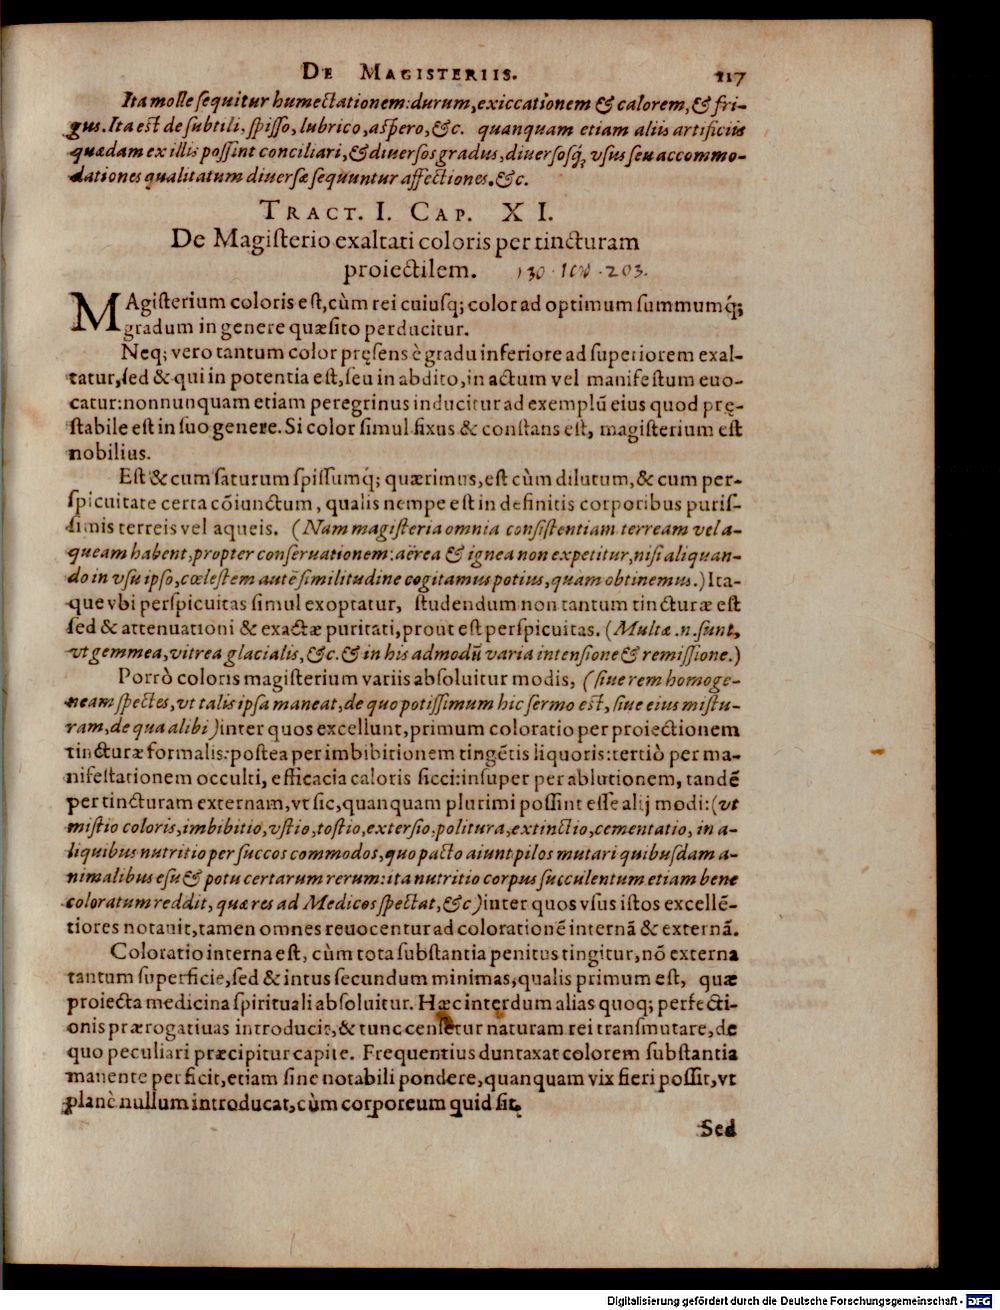 De Magisteriis. 117
Ita molle sequitur humectationem: durum, exiccationem & calorem, & fri-
gus. Ita est de subtili, spisso, lubrico, aspero, &c. quanquam etiam aliis artificiis
quædam ex illis possint conciliari, & diuersos gradus, diuersosq́; vsus seu accommo-
dationes qualitatum diuersæ sequuntur affectiones. &c.
Tract. I. Cap. XI.
De Magisterio exaltati coloris per tincturam
proiectilem. 130 · 203.
MAgisterium coloris est, cùm rei cuiusq; color ad optimum summumq́;
gradum in genere quæsito perducitur.
Neq; vero tantum color pręsens è gradu inferiore ad superiorem exal-
tatur, sed & qui in potentia est, seu in abdito, in actum vel manifestum euo-
catur: nonnunquam etiam peregrinus inducitur ad exemplũ eius quod prę-
stabile est in suo genere. Si color simul fixus & constans est, magisterium est
nobilius.
Est & cum saturum spissumq́; quærimus, est cùm dilutum, & cum per-
spicuitate certa cõiunctum, qualis nempe est in definitis corporibus puris-
simis terreis vel aqueis. (Nam magisteria omnia consistentiam terream vel a-
queam habent, propter conseruationem: aërea & ignea non expetitur, nisi aliquan-
do in vsu ipso, cœlestem autẽ similitudine cogitamus potius, quam obtinemus.) Ita-
que vbi perspicuitas simul exoptatur, studendum non tantum tincturæ est
sed & attenuationi & exactæ puritati, prout est perspicuitas. (Multæ .n. sunt,
vt gemmea, vitrea glacialis, &c. & in his admodũ varia intensione & remissione.)
Porrò coloris magisterium variis absoluitur modis, (siue rem homoge-
neam spectes, vt talis ipsa maneat, de quo potissimum hic sermo est, siue eius mistu-
ram, de qua alibi) inter quos excellunt, primum coloratio per proiectionem
tincturæ formalis: postea per imbibitionem tingẽtis liquoris: tertiò per ma-
nifestationem occulti, efficacia caloris sicci: insuper per ablutionem, tandẽ
per tincturam externam, vt sic, quanquam plurimi possint esse alij modi: (vt
mistio coloris, imbibitio, vstio, tostio, extersio, politura, extinctio, cementatio, in a-
liquibus nutritio per succos commodos, quo pacto aiunt pilos mutari quibusdam a-
nimalibus esu & potu certarum rerum: ita nutritio corpus succulentum etiam bene
coloratum reddit, quæ res ad Medicos spectat, &c) inter quos vsus istos excellẽ-
tiores notauit, tamen omnes reuocentur ad colorationẽ internã & externã.
Coloratio interna est, cùm tota substantia penitus tingitur, nõ externa
tantum superficie, sed & intus secundum minimas, qualis primum est, quæ
proiecta medicina spirituali absoluitur. Hæc interdum alias quoq; perfecti-
onis prærogatiuas introducit, & tunc censetur naturam rei transmutare, de
quo peculiari præcipitur capite. Frequentius duntaxat colorem substantia
manente perficit, etiam sine notabili pondere, quanquam vix fieri possit, vt
planè nullum introducat, cùm corporeum quid sit.
Sed
Digitalisierung gefördert durch die Deutsche Forschungsgemeinschaft - DFG